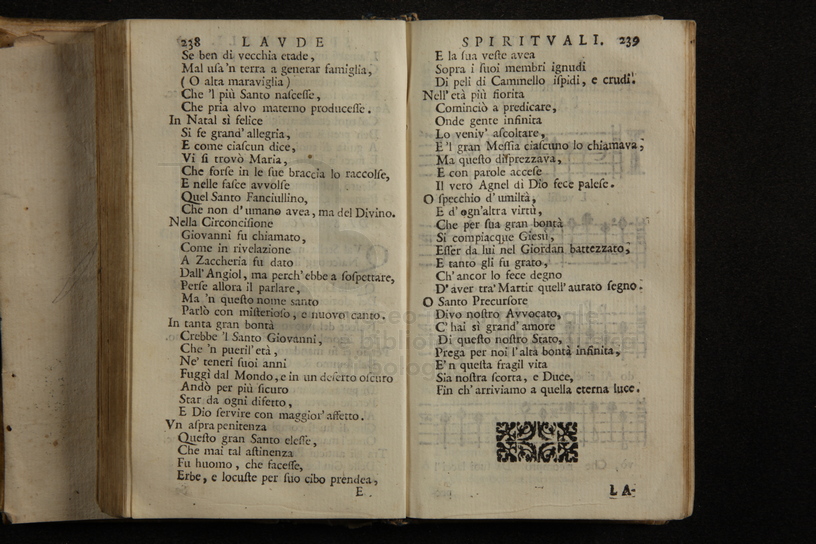 238 LAVDE
Se ben di vecchia etade,
Mal usa'n terra a generar famiglia,
( O alta maraviglia )
Che 'l più Santo nasceſſe,
Che pria alvo materno produceſſe.
In Natal sì felice
Si fe grand' allegria,
E come ciaſcun dice,
Vi ſi trovò Maria,
Che forſe in le ſue braccia lo raccolſe,
E nelle faſce avvolſe
Quel Santo Fanciullino,
Che non d'umano avea, ma del Divino.
Nella Circonciſione
Giovanni fu chiamato,
Come in rivelazione
A Zaccheria fu dato
Dall' Angiol, ma perch' ebbe a ſoſpettare,
Perſe allora il parlare,
Ma 'n queſto nome santo
Parlò con miſterioſo, e nuovo canto.
In tanta gran bontà
Crebbe 'l Santo Giovanni,
Che 'n pueril' età,
Ne' teneri ſuoi anni
Fuggì dal Mondo, e in un deſerto oſcuro
Andò per più ſicuro
Star da ogni difetto,
E Dio ſervire con maggior' affetto.
Vn aſpra penitenza
Queſto gran Santo eleſſe,
Che mai tal aſtinenza
Fu huomo, che faceſſe,
Erbe, e locuſte per ſuo cibo prendea,
E
SPIRITVALI. 239
E la ſua veſte avea
Sopra i ſuoi membri ignudi
Di peli di Cammello iſpidi, e crudi.
Nell' età più fiorita
Cominciò a predicare,
Onde gente infinita
Lo veniv' aſcoltare,
E 'l gran Meſſia ciaſcuno lo chiamava;
Ma queſto diſprezzava,
E con parole acceſe
Il vero Agnel di Dio fece paleſe.
O ſpecchio d'umiltà,
E d'ogn'altra virtù,
Che per ſua gran bontà
Si compiacque Giesù,
Eſſer da lui nel Giordan battezzato,
E tanto gli fu grato,
Ch' ancor lo fece degno
D' aver tra' Martir quell' aurato ſegno.
O Santo Precurſore
Divo noſtro Avvocato,
C' hai sì grand' amore
Di queſto noſtro Stato,
Prega per noi l'alta bontà infinita,
E'n queſta fragil vita
Sia noſtra ſcorta, e Duce,
Fin ch' arriviamo a quella eterna luce.
LA-